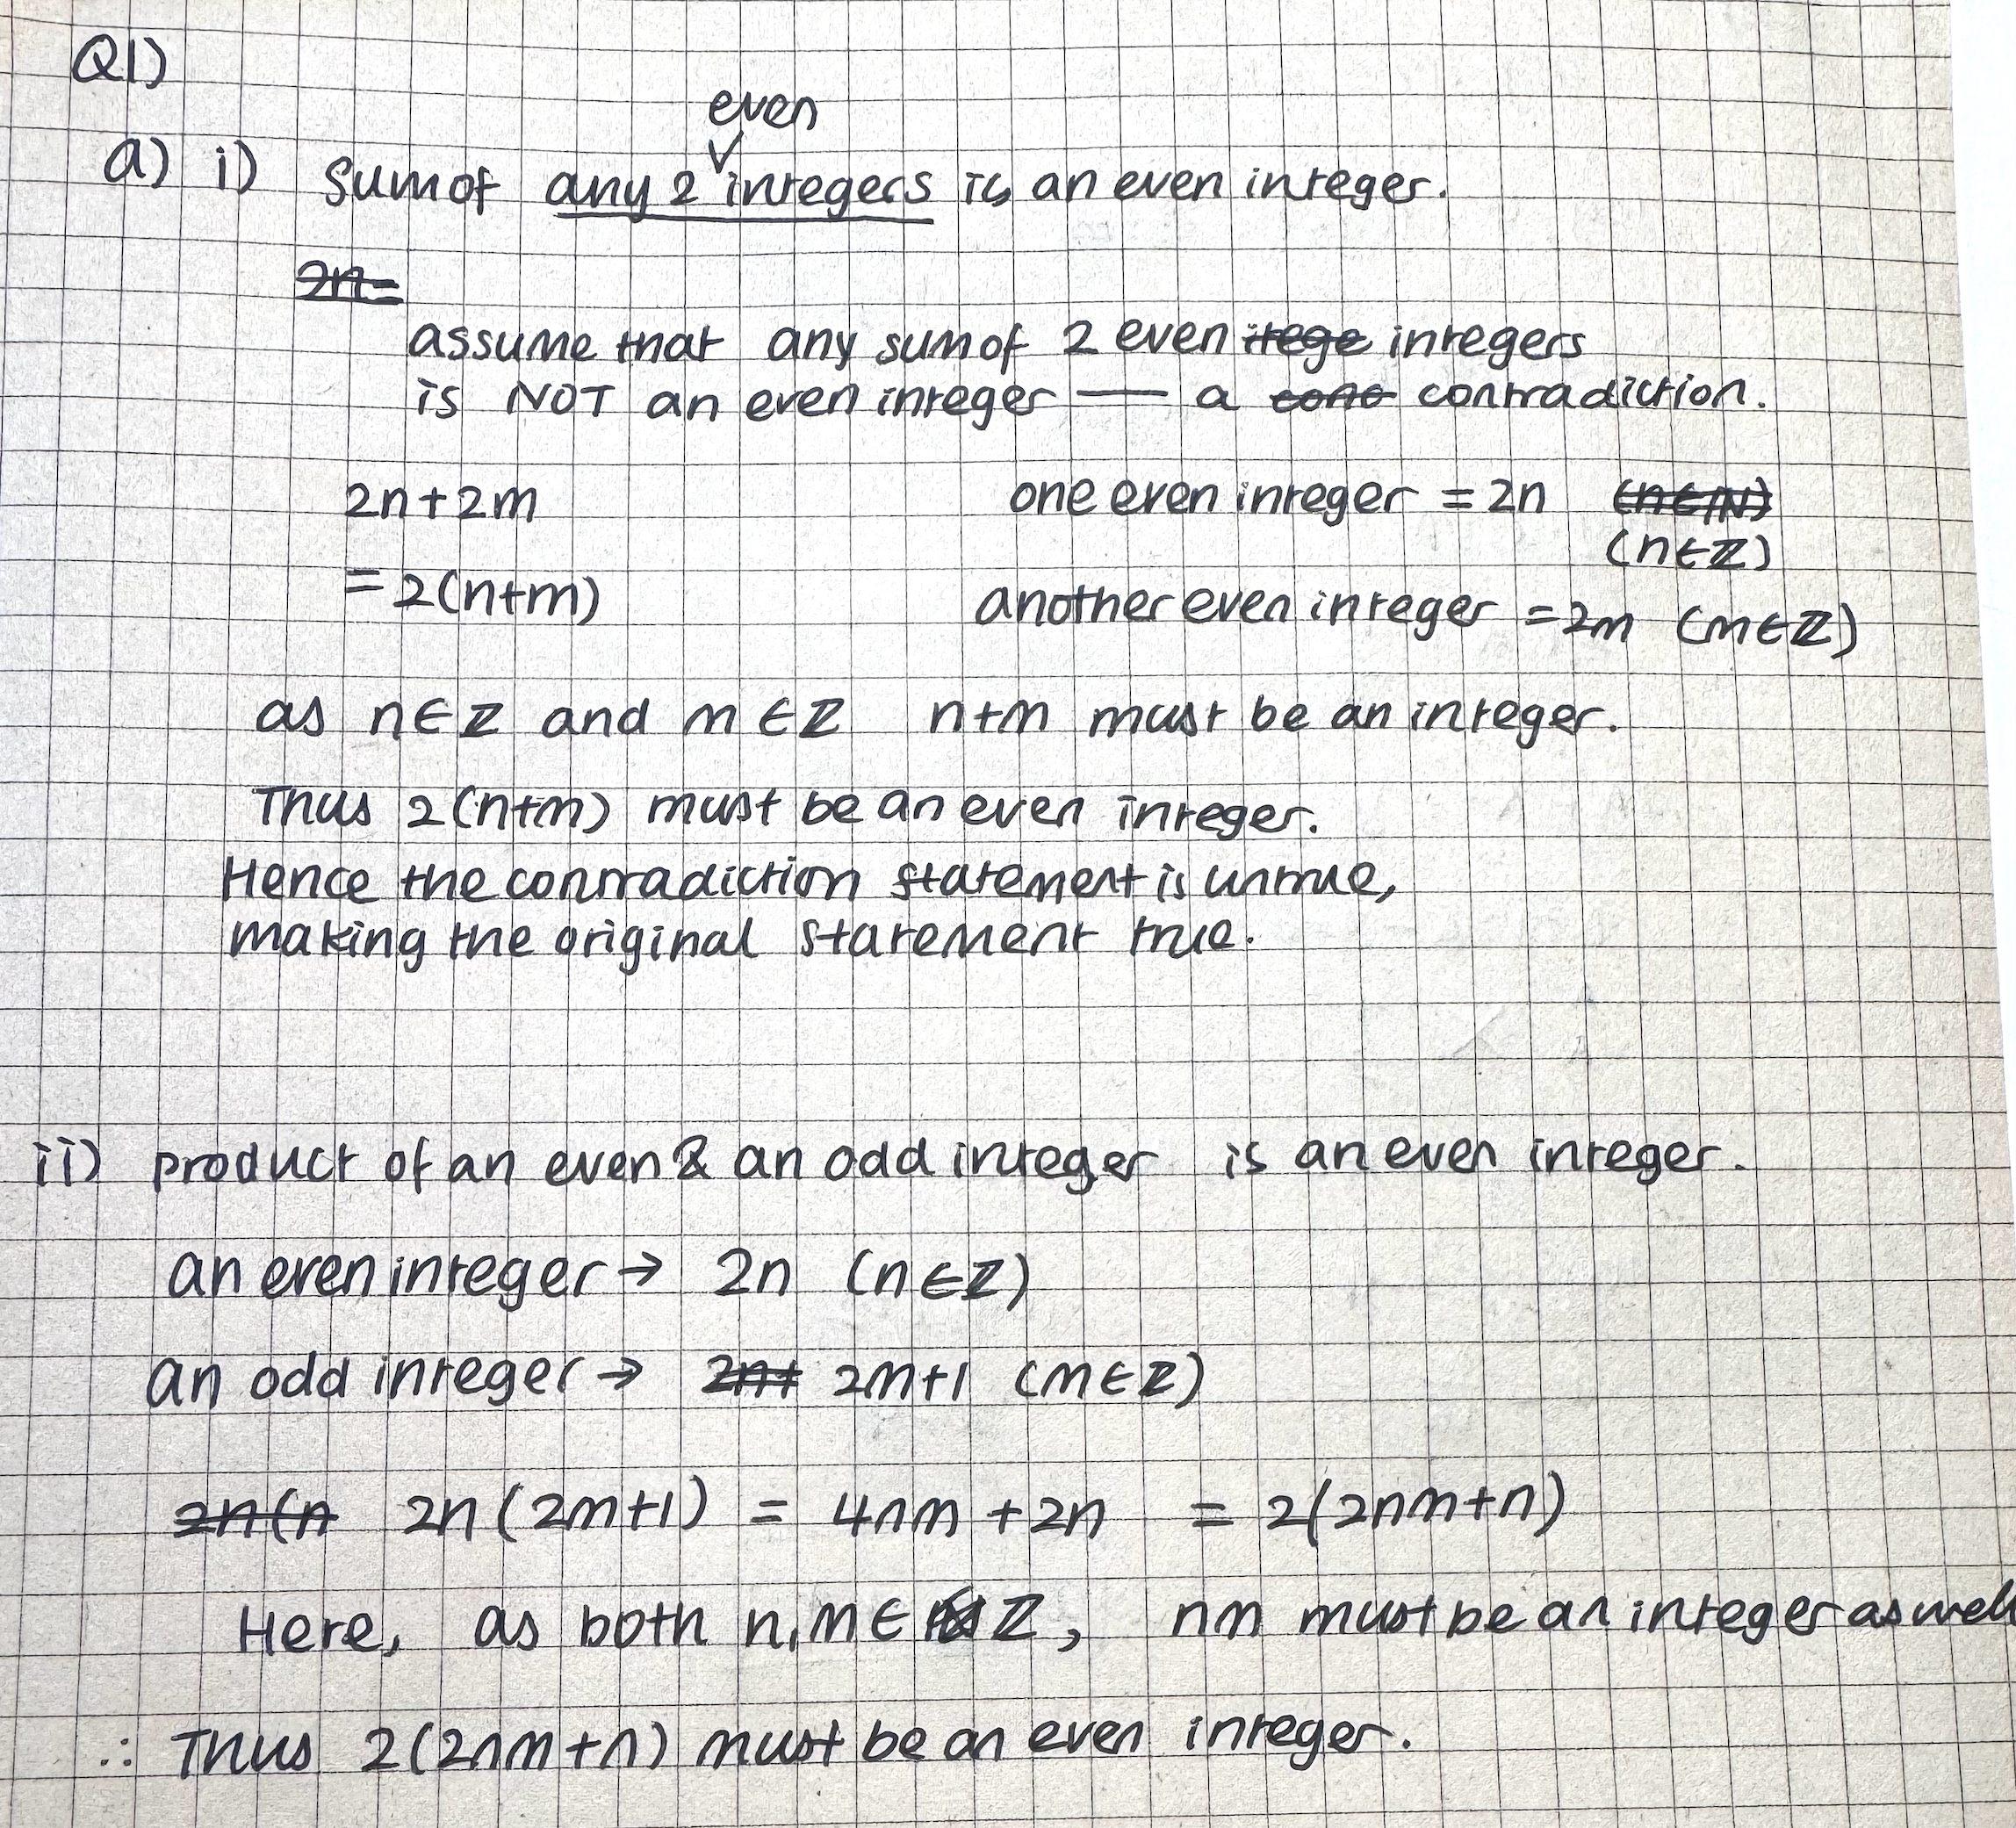 Q1)
even
a) i) Sum of any 2 integers is an even integer.
2n=
assume that any sum of 2 even itege integers
is NOT an even integer — a cono contradiction.
2n+2m one even integer = 2n (n∈ℕ)
(n∈ℤ)
= 2(n+m) another even integer = 2m (m∈ℤ)
as n∈ℤ and m∈ℤ n+m must be an integer.
Thus 2(n+m) must be an even integer.
Hence the contradiction statement is untrue,
making the original statement true.
ii) product of an even & an odd integer is an even integer.
an even integer → 2n (n∈ℤ)
an odd integer → 2n+ 2m+1 (m∈ℤ)
2n(n 2n(2m+1) = 4nm + 2n = 2(2nm+n)
Here, as both n,m ∈ ℤ, nm must be an integer as well
∴ Thus 2(2nm+n) must be an even integer.